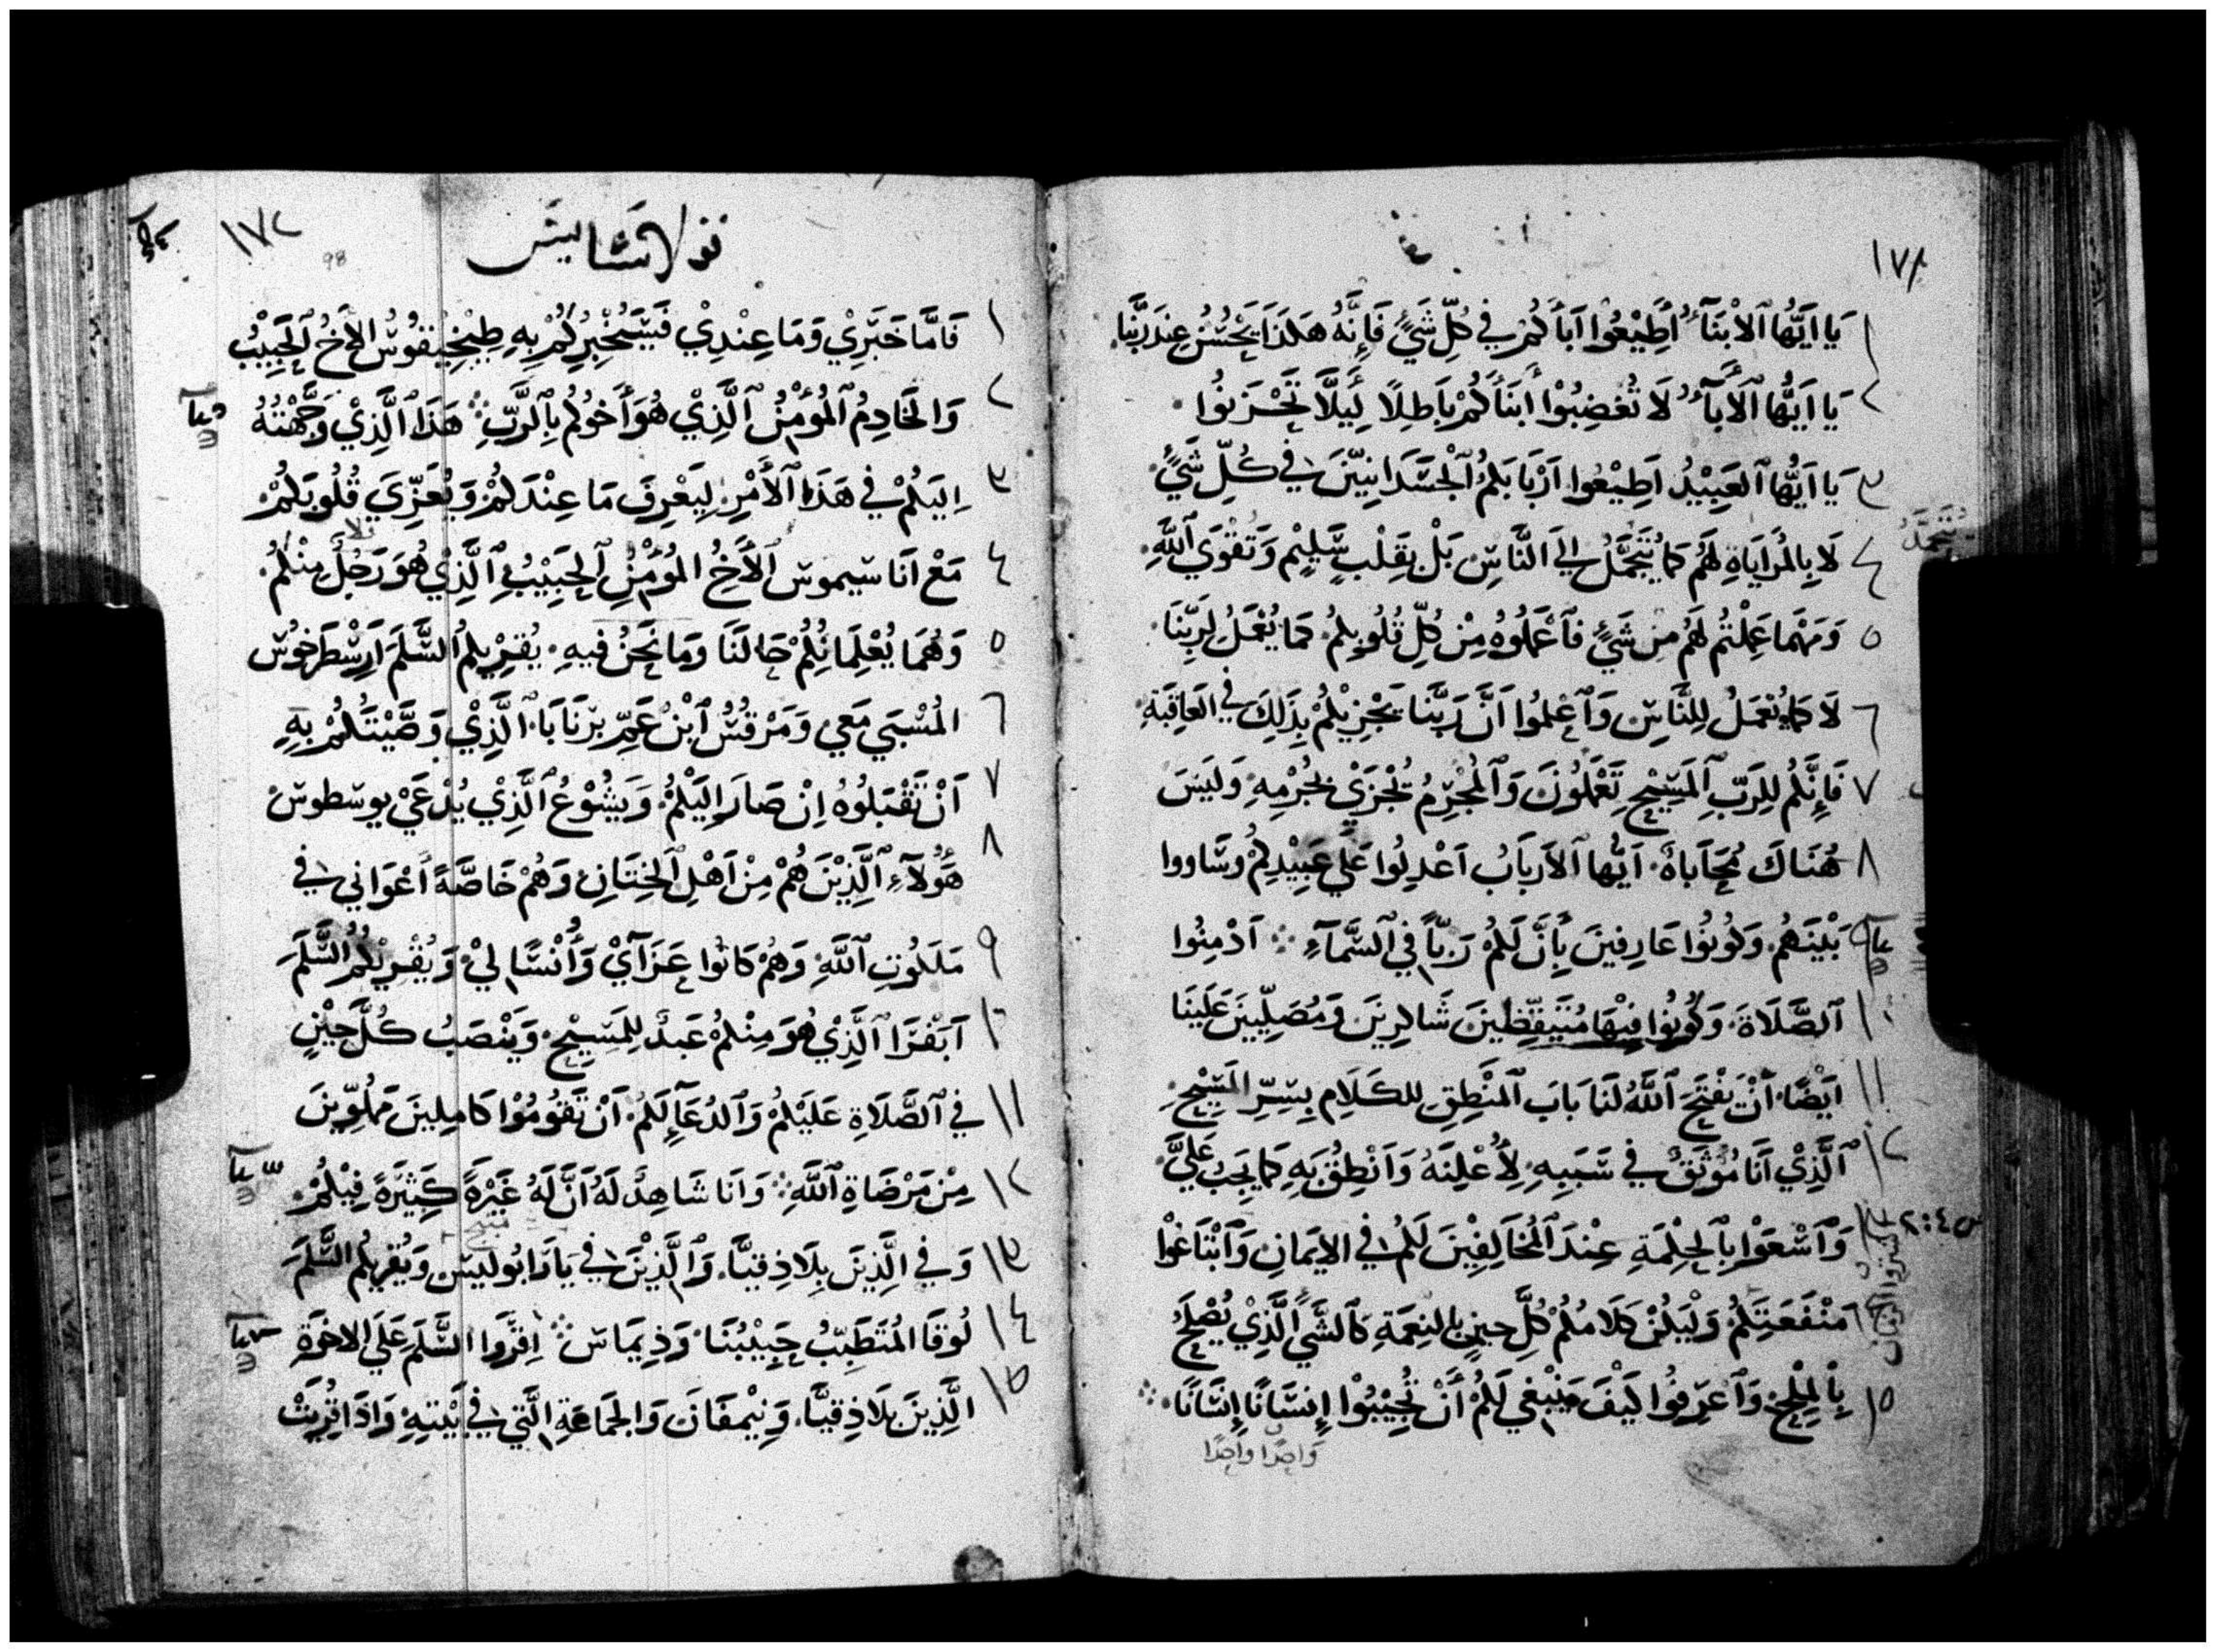 ١٧١
١ يَا اَيُّهَا ٱلاَبْنَآءُ أَطِيْعُوا اَبَآكُمْ فِي كُلِّ شَيْءٍ فَإِنَّهُ هَكَذَا يَحْسُنُ عِندَ رَبِّنَا.
٢ يَا اَيُّهَا ٱلأَبآءُ لَا تُغضِبُوْا أَبنَاءَكُمْ بَاطِلًا لِئَيلَّا تَحْزَنُوا ·
٣ يَا اَيُّهَا ٱلعَبِيْدُ اَطِيْعُوا اَرْبَابَكُمُ ٱلْجَسَدَانِيّينَ فِي كُلِّ شَيْءٍ·
٤ لَا بِالمُرَايَاةِ لَهُم كَمَا يُتَجَمَّلُ اِلَى النَّاسِ بَلْ بِقَلْبٍ سَلِيْمٍ وَتَقْوَي ٱللَّهِ·
يُتَجَمَّلُ
٥ وَمَهْمَا عَمِلْتُم لَهُم مِن شَيْءٍ فَٱعْمَلُوهُ مِنْ كُلِّ قُلُوبِكُمْ. كَمَا يُعْمَلُ لِرَبِّنَا.
٦ لَا كَمَا يُعْمَلُ لِلنَّاسِ وَٱعْلمُوا اَنَّ رَبَّنَا يَجْزِيْكُمْ بِذَلِكَ فِي العَاقِبَةِ·
٧ فَإِنَّكُمْ لِلرَبِّ ٱلمَسِيْحِ تَعْمَلُونَ وَٱلمُجْرِمُ يُجْزَيْ بِجُرْمِهِ وَلَيسَ
٨ هُنَاكَ مُحَابَاةٌ. اَيُّهَا ٱلاَربَابُ اَعْدِلُوا عَلَي عَبِيْدِكُمْ وسَاووا
٩ بَيْنَهُمْ. وَكُونُوْا عَارِفِينَ بِأَنَّ لَكُمْ رَبّاً فِي ٱلسَّمَآءِ ⁘ اَدْمِنُوا
١٠ ٱلصَّلَاةَ. وَكُونُوا فِيْهَا مُتَيَقِّظِينَ شَاكِرِينَ وَمُصَلِّيينَ عَلَيْنَا
١١ اَيْضًا. أَنْ يَفْتَحَ ٱللَّهُ لَنَا بَابَ ٱلمَنْطِقِ لِلكَلَامِ بِسِرِّ المَسِيْحِ.
١٢ ٱلَّذِيْ اَنَا مُوْثَقٌ فِي سَبَبِهِ. لِأُعْلِنَهُ وَاَنْطِقُ بِهِ كَمَا يَجِبُ عَلَيَّ.
١٣ وَٱسْعَوْا بِٱلحِكْمَةِ عِنْدَ ٱلمُخَالِفِيْنَ لَكُمْ فِي الاِيمَانِ وَٱبْتَاعُوْا
س ٢:٤
١٤ مَنْفَعَتَكُمْ وَلْيَكُنْ كَلَامُكُمْ كُلَّ حِينٍ بِالنِعمَةِ كَٱلشَّيءِ الَّذِيْ يُصْلَحُ
١٥ بِٱلمِلْحِ. وَٱعرِفُوا كَيْفَ يَنْبَغِي لَكُمْ أَنْ تُجِيْبُوْا إِنسَانًا إِنسَانًا. ⁘
وَاحِدًا واحِدًا
١٧٢
98
قولاسَّايس
١ فَامَّا خَبَرِيْ وَمَا عِنْدِيْ فَسَيُخْبِرُكُمْ بِهِ طِيْخِيْقُوْسُ الاَخُ ٱلحَبِيْبُ
٢ وَالخَادِمُ ٱلمُؤْمِنُ ٱلَّذِيْ هُوَ أَخُوكُمْ بِٱلرَّبِّ ⁘ هَذَا ٱلَّذِيْ وَجَّهْتُهُ
٣ اِلَيكُمْ فِي هَذَا ٱلأَمْرِ. لِيَعْرِفَ مَا عِنْدَكُمْ وَيُعَزِّيَ قُلُوبَكُمْ.
٤ مَعْ اَنَاسِيموسَ ٱلأَخِ المُؤْمِنِ ٱلحَبِيْبِ ٱلَّذِيْ هُوَ رَجُلٌ مِنْكُمْ.
٥ وَهُمَا يُعْلِمَانِكُمْ حَالَنَا وَمَا نَحنُ فِيهِ. يُقرِيكُمُ السَّلَمَ اَرِسْطَرخُوسُ
٦ المُسْبَي مَعِي وَمَرْقُسُ ٱبْنُ عَمِّ بَرْنَابَا. ٱلَّذِيْ وَصَّيْتُكُمْ بِهِ
٧ اَنْ تَقْبَلُوهُ اِنْ صَارَ اِلَيْكُمْ. وَيَشُوْعُ ٱلَّذِيْ يُدْعَيْ يوسطوسَ
٨ هَؤُلَآءِ ٱلَّذِيْنَ هُمْ مِنْ اَهْلِ ٱلخِتَانِ وَهُمْ خَاصَّةً أَعْوَانِي فِي
٩ مَلَكُوتِ ٱللَّهِ. وَهُمْ كَانُوا عَزَآيْ وَأُنْسًا لِيْ. وَيُقْرِيْكُمُ السَّلَمَ
١٠ آبَفْرَا ٱلَّذِيْ هُوَ مِنْكُمْ عَبدٌ لِلمَسِيْحِ. وَيَنْصَبُ كُلَّ حِيْنٍ
١١ فِي ٱلصَّلَاةِ عَلَيْكُمْ وَٱلدُعَآءِ لَكُمْ. اَنْ تَقُومُوْا كَامِلِينَ مَمْلُوِّينَ
١٢ مِنْ مَرْضَاةِ ٱللَّهِ ⁘ وَاَنَا شَاهِدٌ لَهُ اَنَّ لَهُ غَيْرَةً كَثِيْرَةً فِيْكُمْ.
١٣ وَفِي الَّذِينَ بِلَاذِقيَّا. وَٱلَّذِيْنَ فِي يَارَابُولِيسَ وَيُقرِيكُم السَّلمَ
١٤ لُوقَا المُتَطَبِّبُ حَبِيْبُنَا. وَذِيمَاسَ ⁘ اِقرَوا السَّلَمَ عَلَي الاِخوَةِ
١٥ الَّذِينَ بِلَاذِقيَّا. وَنِيْمفَانَ وَالجَمَاعَةِ الَّتِي فِي بَيْتِهِ. وَاذَا قُرِيَتْ